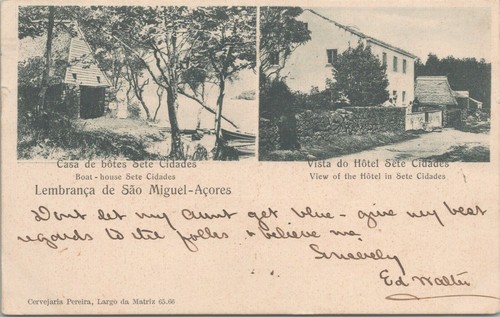 Casa de bôtes Sete Cidades
Boat-house Sete Cidades
Vista do Hôtel Sete Cidades
View of the Hôtel in Sete Cidades
Lembrança de São Miguel-Açores
Dont let my Aunt get blue - give my best
regards to the folks & believe me
Sincerely
Ed Walter
Cervejaria Pereira, Largo da Matriz 65.66